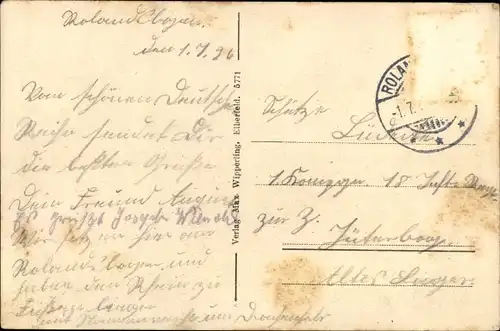 Rolandsbogen
den 1.7.26
Vom schönen Deutschen
Rhein sendet Dir
die besten Grüße
Dein Freund August
Es grüßt Joseph
Wir sitzen hier am
Rolandsbogen und
haben den Rhein zu
liegen
um Drachenfels
Verlag Max Wipperling, Elberfeld. 5771
ROLAN
-1.7.
Schütze
Lüdecke
1. Kompagn. 18. Inftr. Regt.
zur Z. Jüterbog
Altes Lager